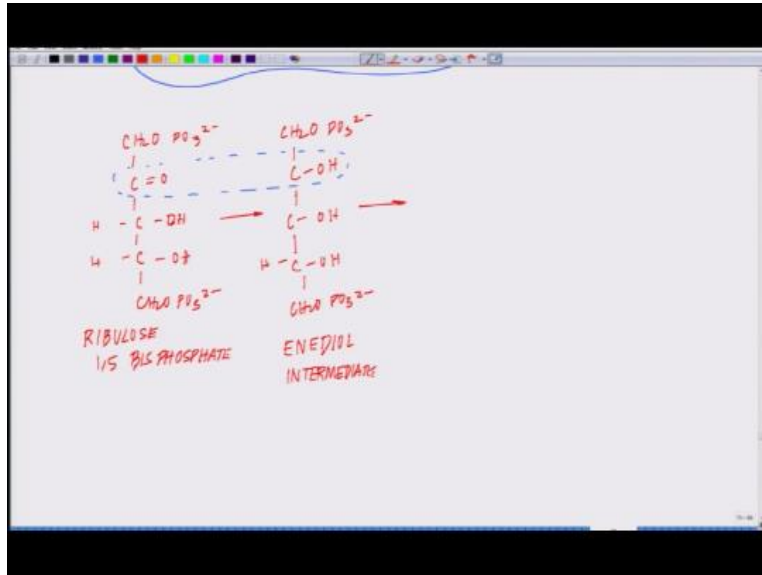 CH2O PO3 2-
C = O
H - C - OH
H - C - OH
CH2O PO3 2-
RIBULOSE
1,5 BISPHOSPHATE
CH2O PO3 2-
C - OH
C - OH
H - C - OH
CH2O PO3 2-
ENEDIOL
INTERMEDIATE